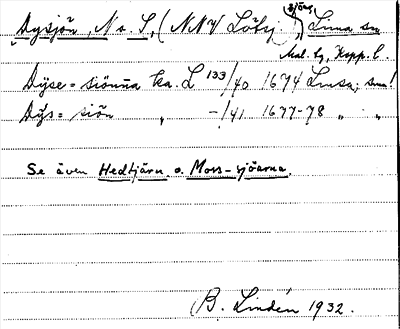 Dysjön, N o. S, (NNV Lötsj(öns)), Lima sn
Mal. tg, Kopp. l.
Dÿse=siönna ka. L 133/40 1674 Lmsa; sm!
Dÿs=siön „ -/41 1677-78 „ „
Se även Hedtjärn o. Mors-sjöarna.
B. Lindén 1932.